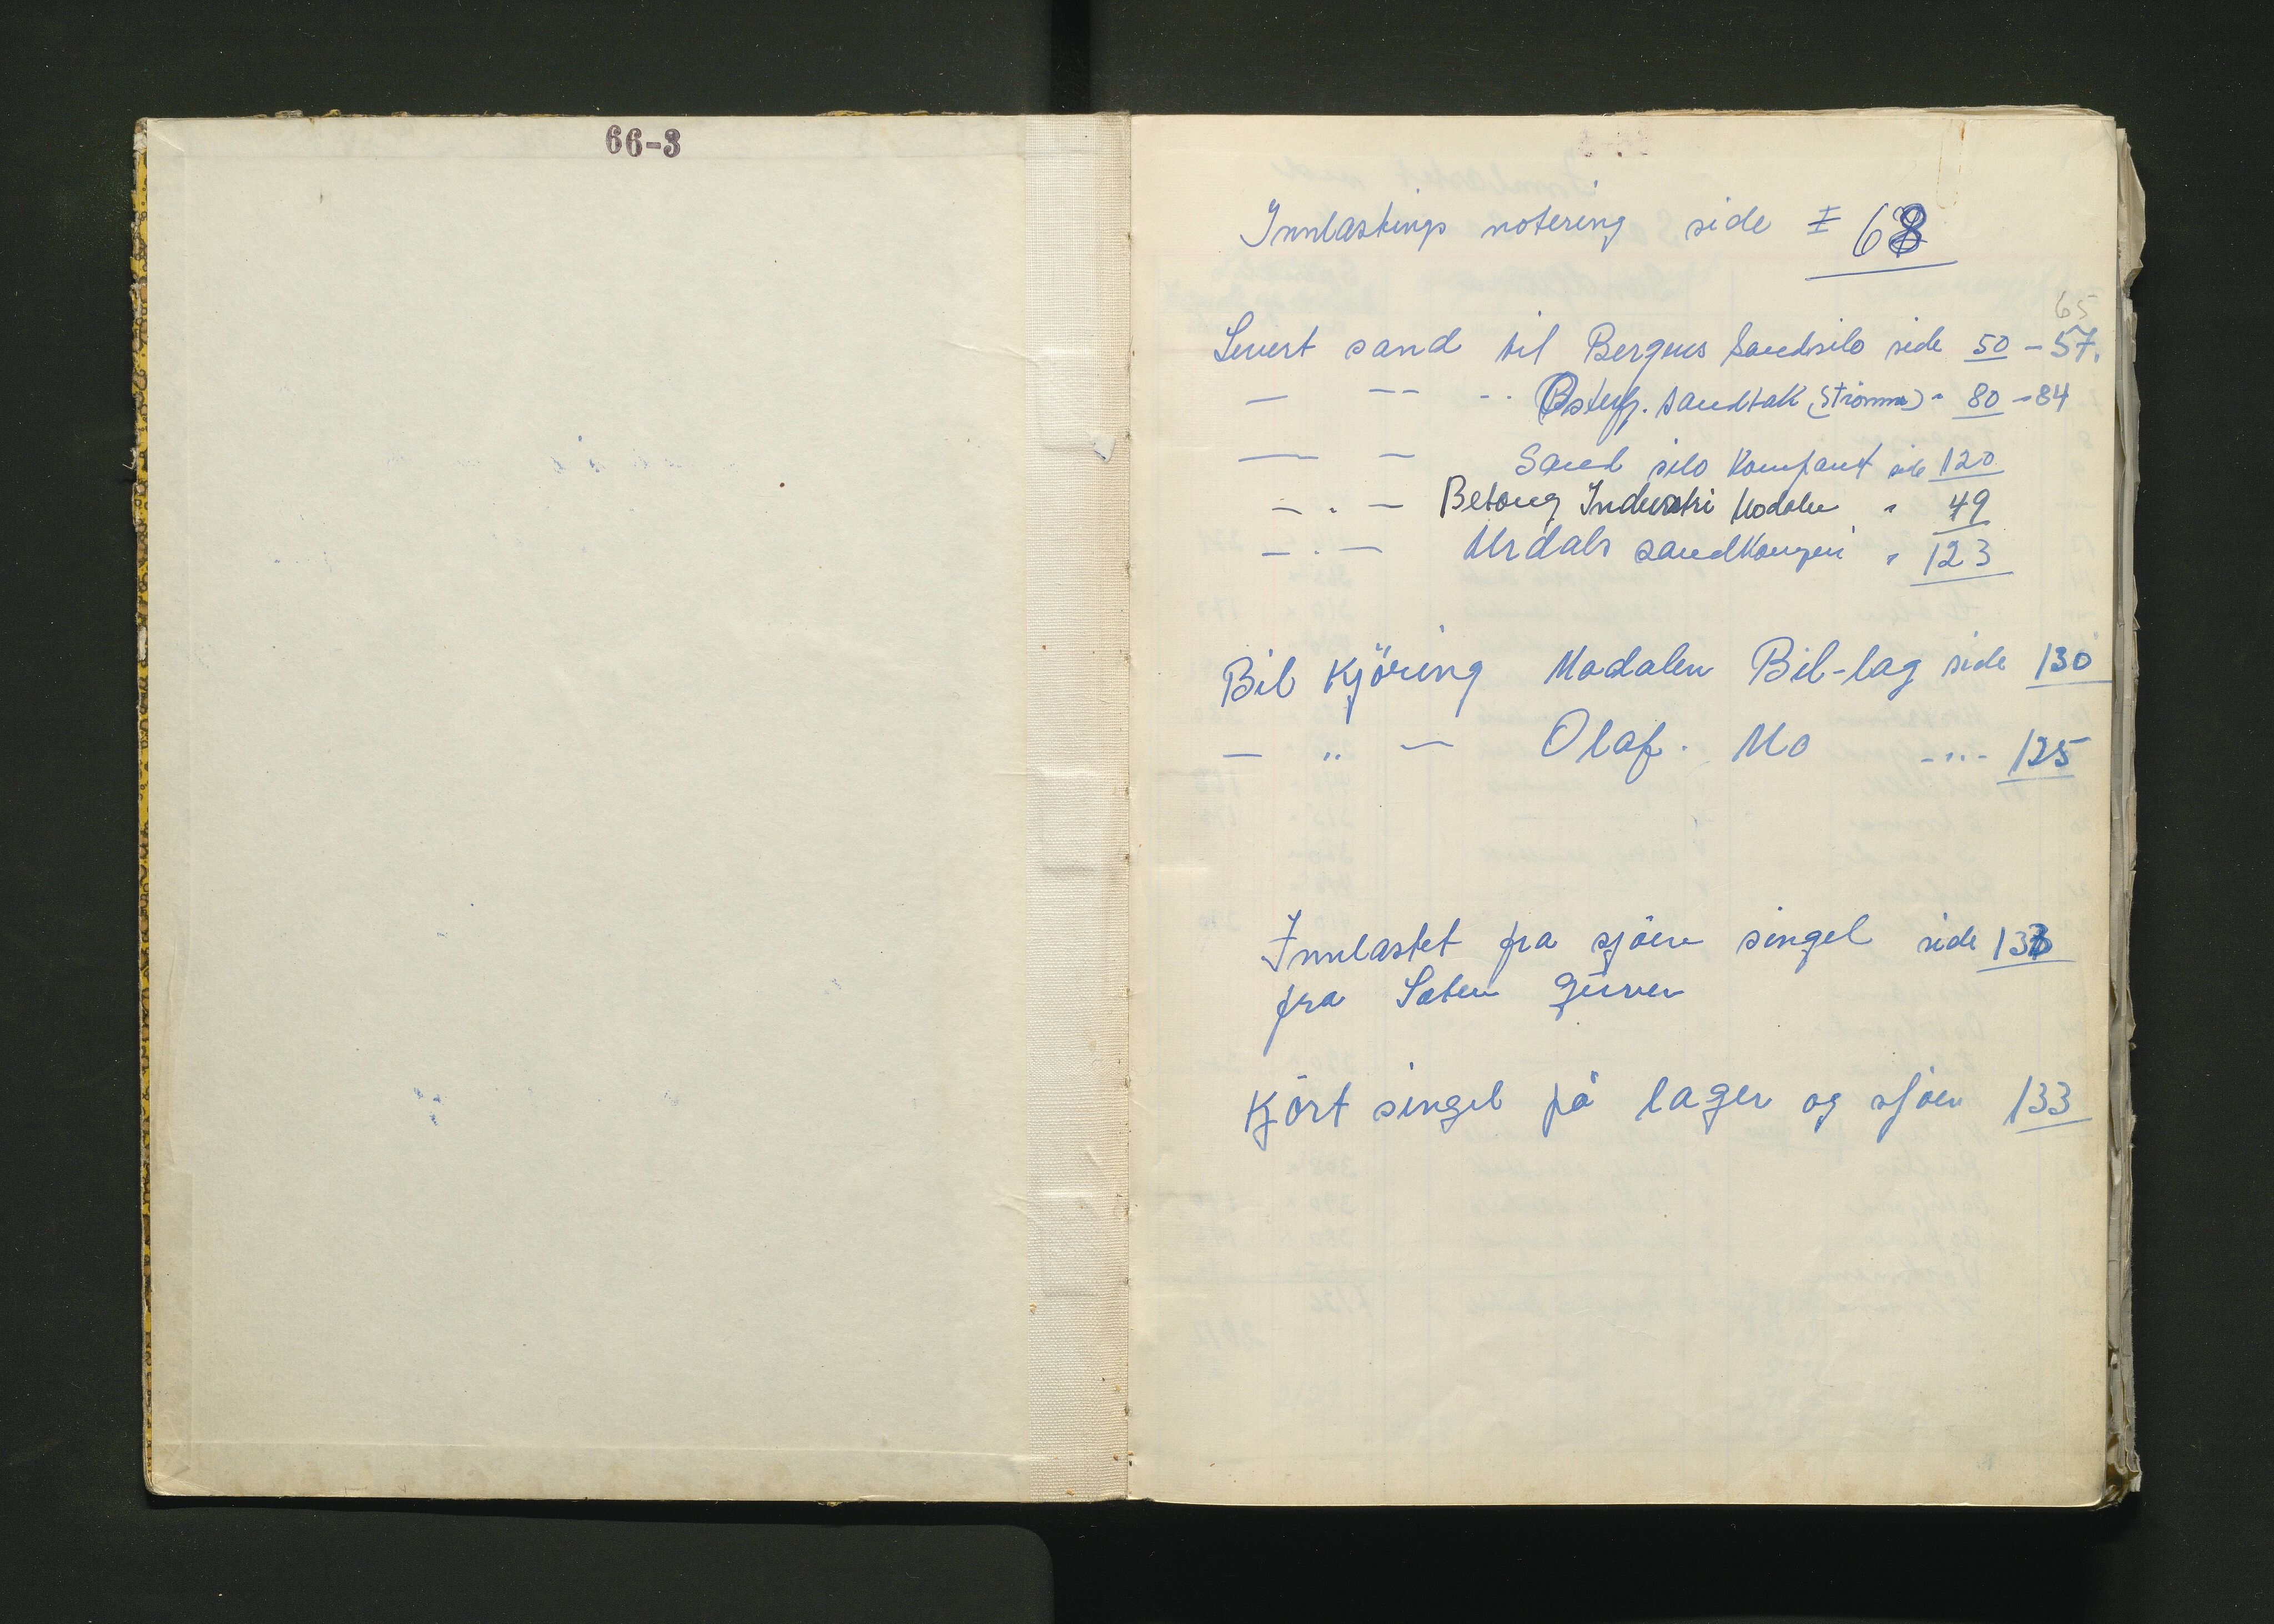 66-3
Innlastings notering side I 68
65
Levert sand til Bergens Sandsilo side 50 - 57.
— -- -.. Osterfj. sandtak (Strømme) " 80 - 84
— — Sand silo Kompani side 120
- . - Betong Industri Modalen " 49
- . - Urdals sandkompani " 123
Bil Kjöring Modalen Bil-lag side 130
— " — Olaf. Mo -"- 125
Innlastet fra sjöen singel side 133
fra
Kjört singel på lager og sjöen 133